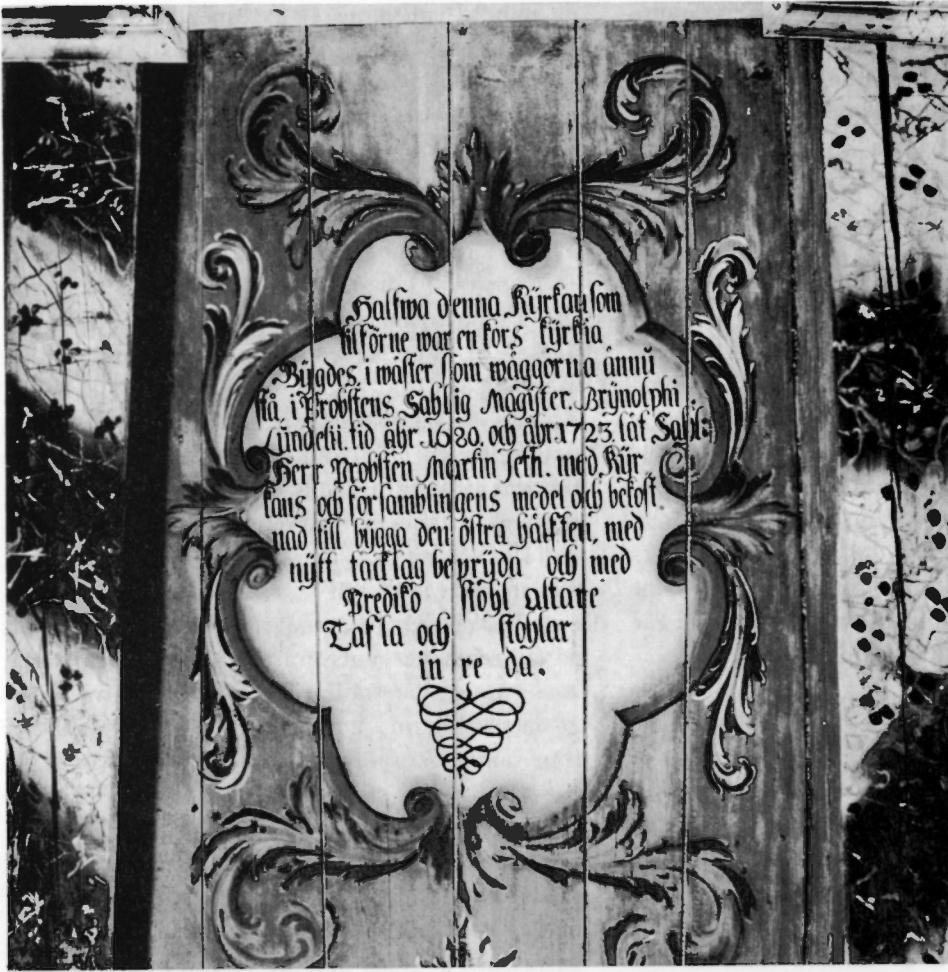 Halfwa denna Kÿrkan som
tilförne war en kors kÿrkia
Bÿgdes i wäster som wäggorna ännu
stå, i Probstens Sahlig Magister. Brÿnolphi
Lundelii. tid åhr. 1680. och åhr. 1723. lät Sahl:
Herr Probsten Martin Seth. med Kÿr
kans och församblingens medel och bekost
nad till bÿgga den östra hälften, med
nÿtt tacklag beprÿda och med
Prediko stohl altare
Tafla och stohlar
in re da.